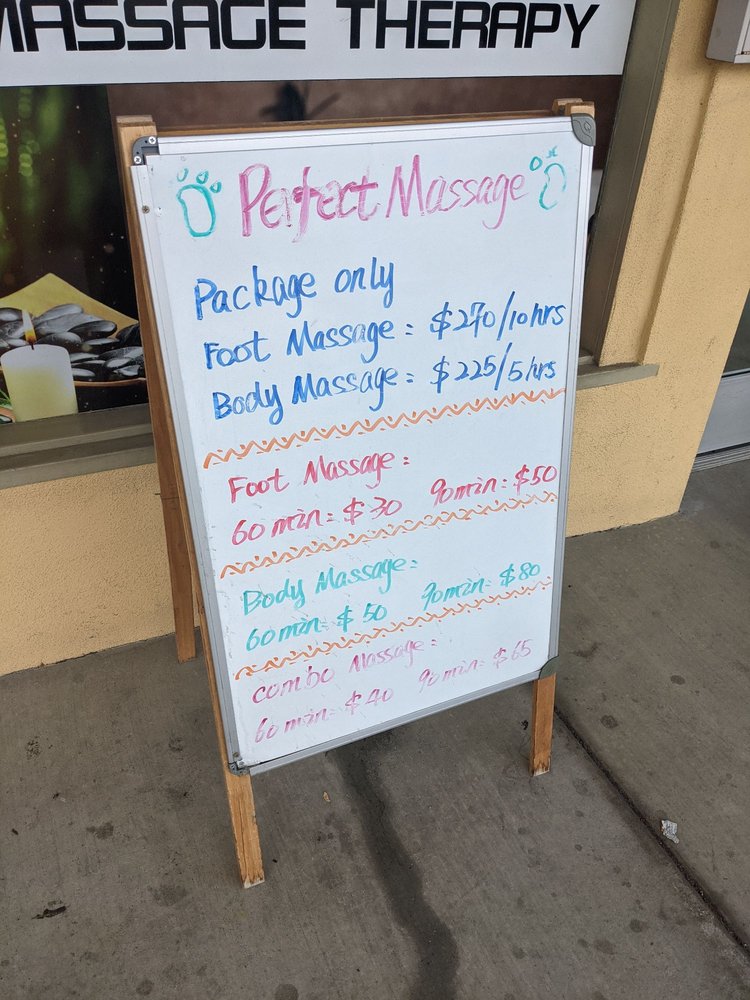 MASSAGE THERAPY
Perfect Massage
Package only
Foot Massage: $270/10hrs
Body Massage: $225/5hrs
Foot Massage:
60min: $30 90min: $50
Body Massage:
60min: $50 90min: $80
combo Massage:
60min: $40 90min: $65